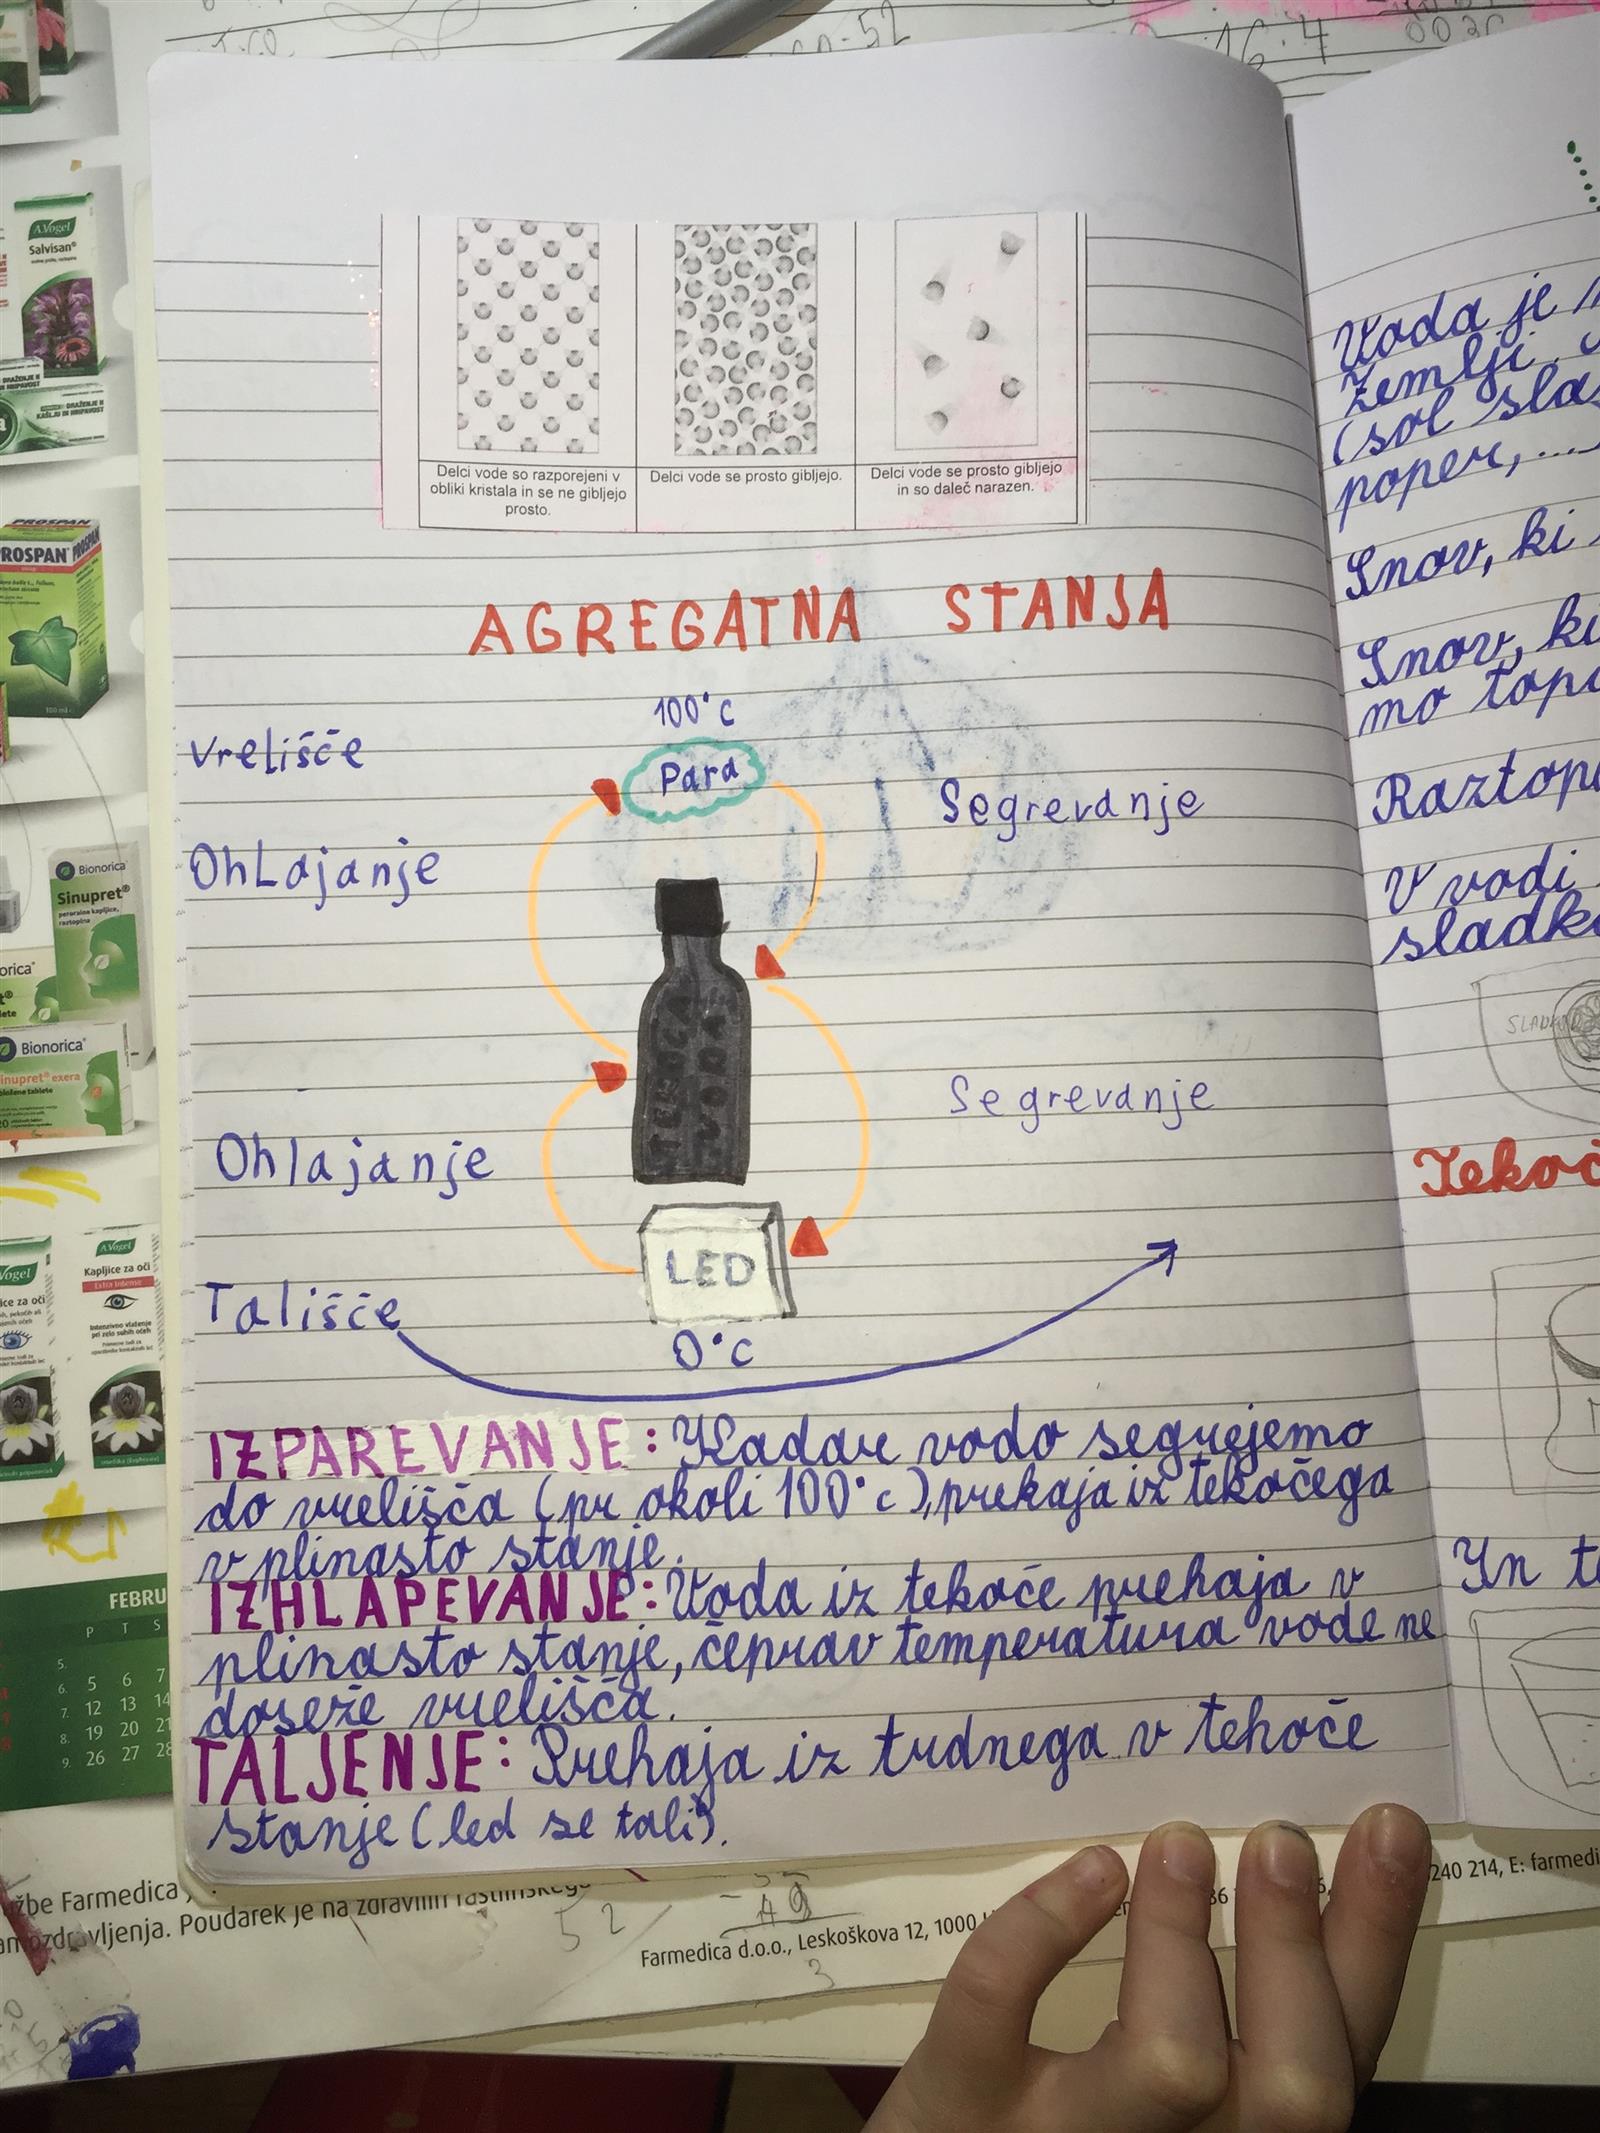 16.4
A.Vogel
Salvisan®
PROSPAN
PROSPAN
Bionorica®
Sinupret®
peroralne kapljice,
raztopina
Bionorica®
A.Vogel
Kapljice za oči
Extra Intense
Intenzivno vlaženje
pri zelo suhih očeh
FEBRU
P T S
5.
6. 5 6 7
7. 12 13 14
8. 19 20 21
9. 26 27 28
Delci vode so razporejeni v
obliki kristala in se ne gibljejo
prosto.
Delci vode se prosto gibljejo.
Delci vode se prosto gibljejo
in so daleč narazen.
AGREGATNA STANJA
100°C
Vrelišče
Para
Segrevanje
Ohlajanje
TEKOČA
VODA
Segrevanje
Ohlajanje
LED
Tališče
0°C
IZPAREVANJE: Kadar vodo segrejemo
do vrelišča (pr okoli 100°c), prehaja iz tekočega
v plinasto stanje.
IZHLAPEVANJE: Voda iz tekoče prehaja v
plinasto stanje, čeprav temperatura vode ne
doseže vrelišča.
TALJENJE: Prehaja iz trdnega v tekoče
stanje (led se tali).
Voda je
Zemlji.
(sol sla
poper, ...
Snov, ki
Snov, ki
mo topi
Raztopi
V vodi
sladko
SLADKOR
Tekoč
In t
Farmedica
Poudarek je na zdravilih rastlinskega
Farmedica d.o.o., Leskoškova 12, 1000
240 214, E: farmedi
52
3